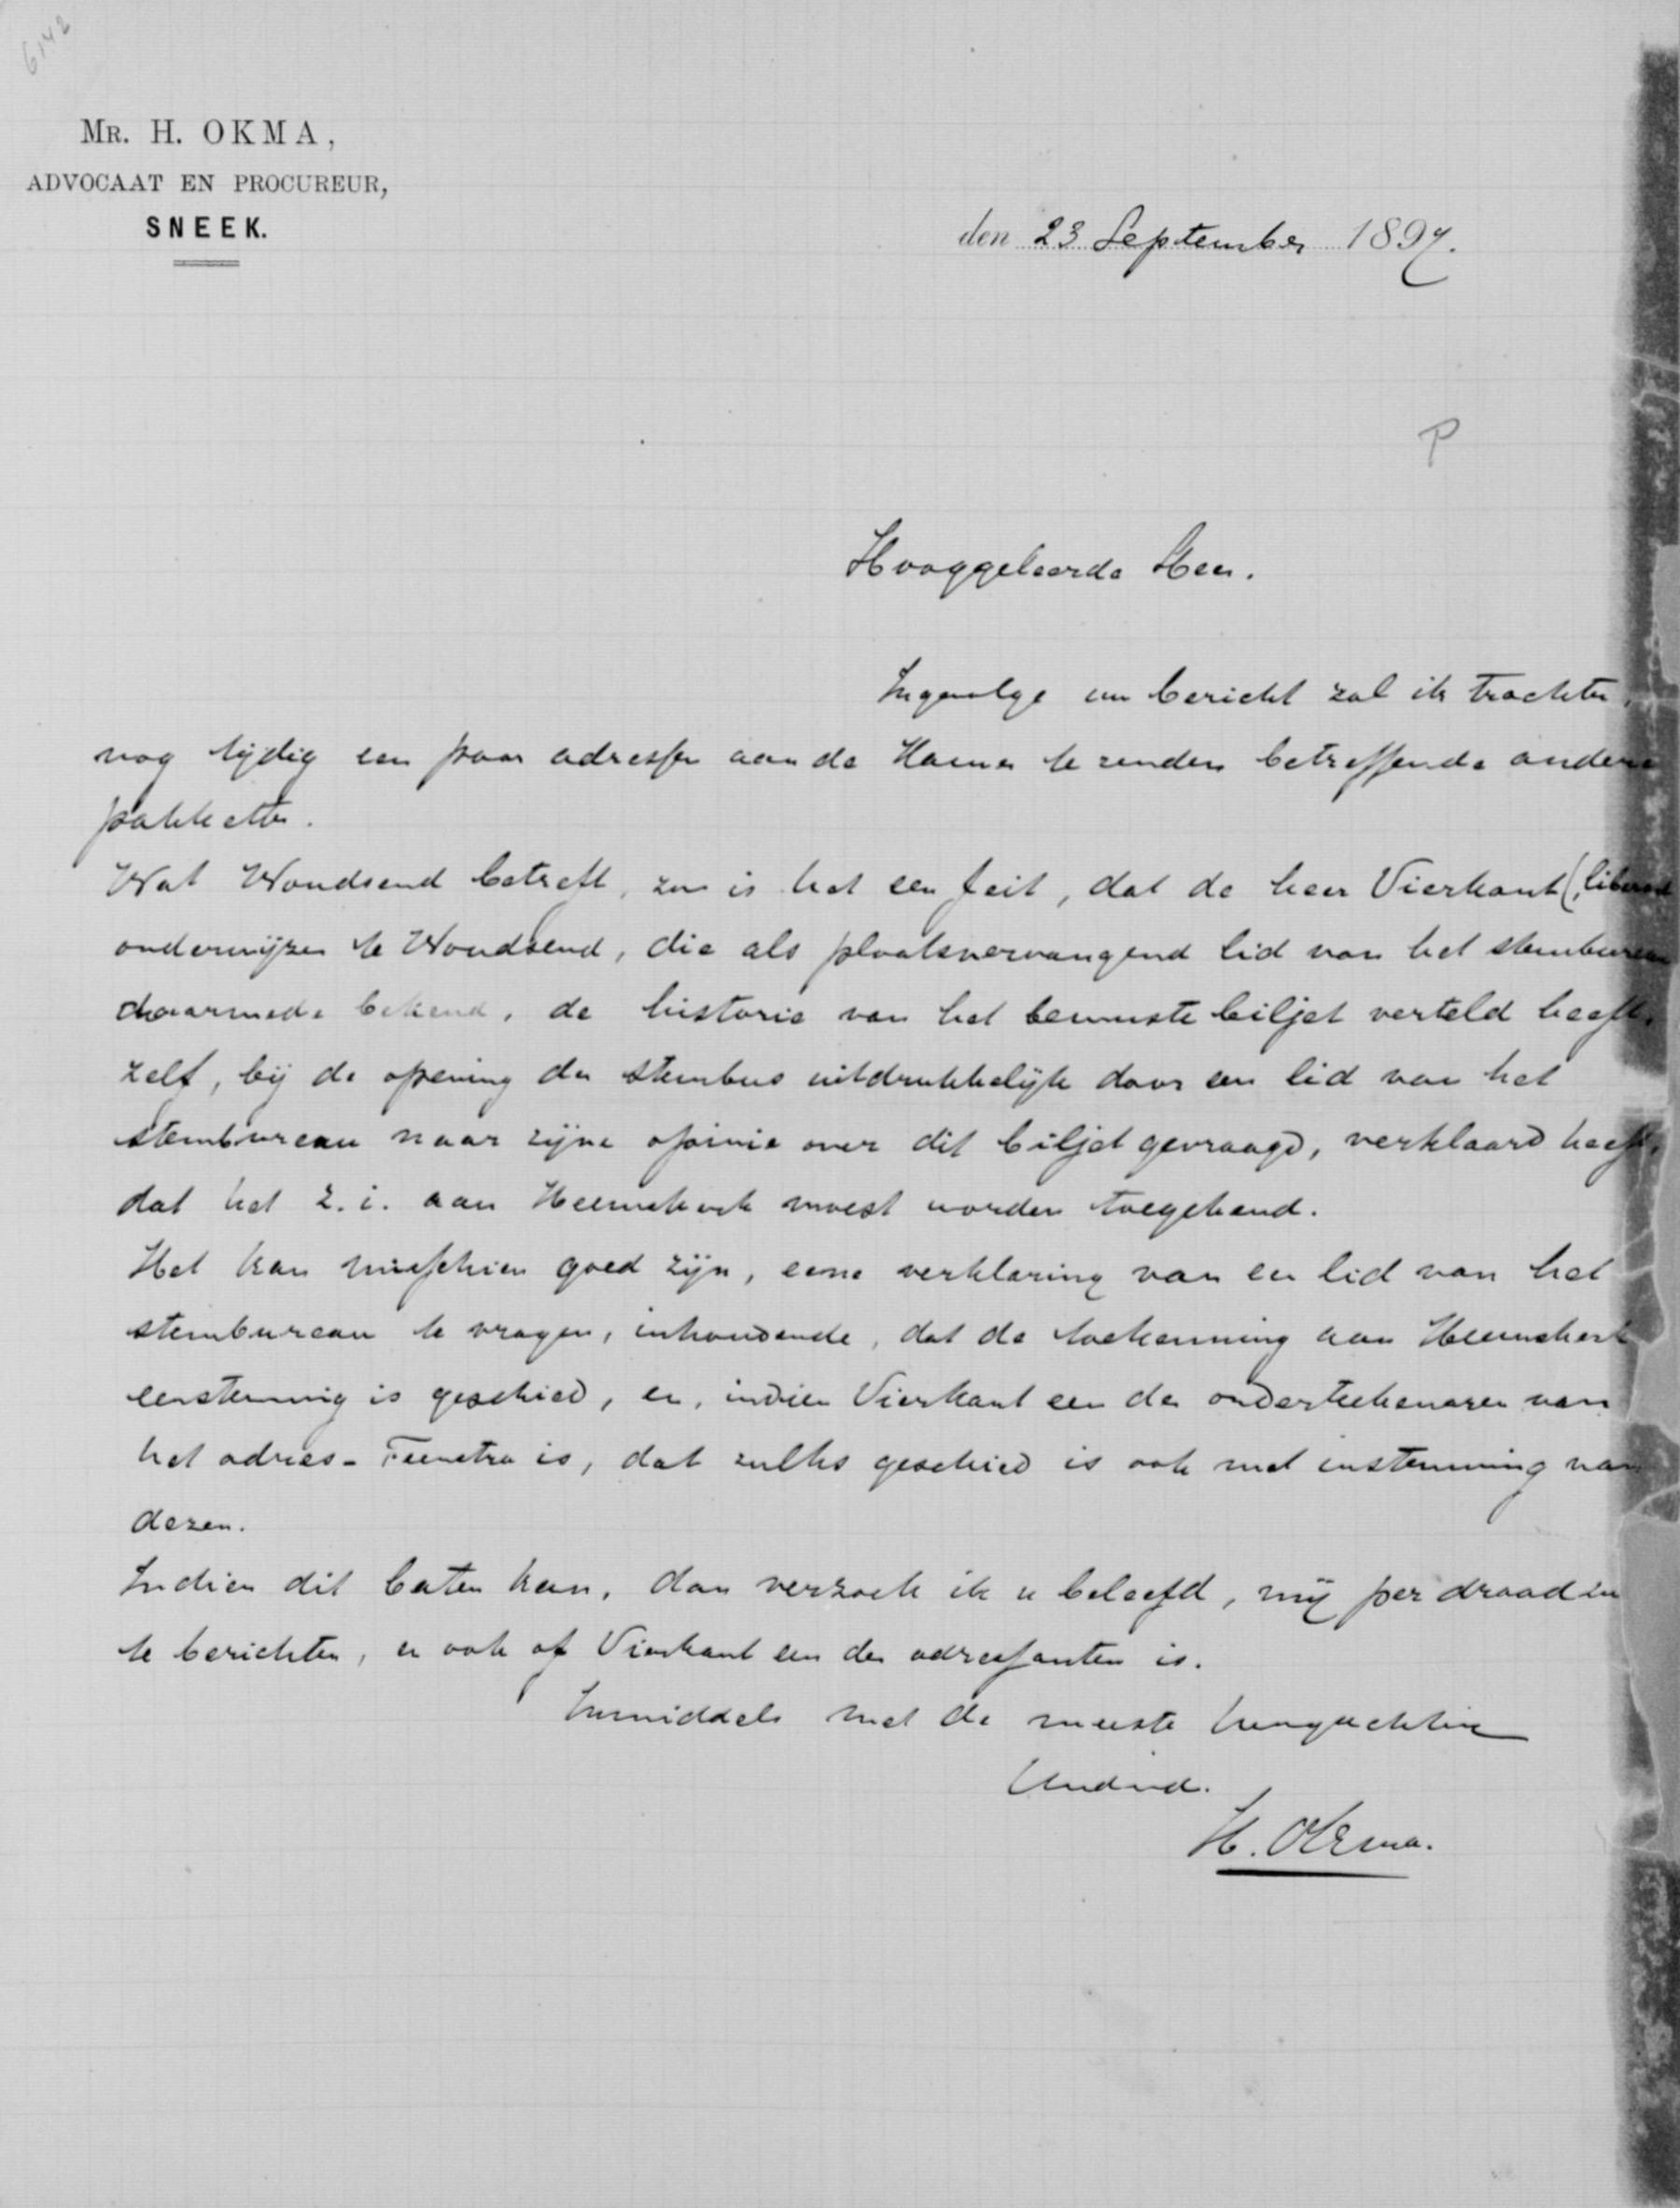 6142
MR. H. OKMA,
ADVOCAAT EN PROCUREUR,
SNEEK.
den 23 September 1897.
P
Hooggeleerde Heer.
Ingevolge uw bericht zal ik trachten,
nog tijdig een paar adressen aan de Kamer te zenden betreffende andere
pakketten.
Wat Woudsend betreft, zoo is het een feit, dat de heer Vierkant (liberaal
onderwijzer te Woudsend, die als plaatsvervangend lid van het stembureau
daarmede bekend, de historie van het bewuste biljet verteld heeft,
zelf, bij de opening der stembus uitdrukkelijk door een lid van het
stembureau naar zijne opinie over dit biljet gevraagd, verklaard heeft,
dat het z.i. aan Heemskerk moest worden toegekend.
Het kan misschien goed zijn, eene verklaring van een lid van het
stembureau te vragen, inhoudende, dat de toekenning aan Heemskerk
eenstemmig is geschied, en, indien Vierkant een der onderteekenaren van
het adres-Feenstra is, dat zulks geschied is ook met instemming van
dezen.
Indien dit baten kan, dan verzoek ik u beleefd, mij per draad
te berichten, en ook of Vierkant een der adressanten is.
Inmiddels met de meeste hoogachting
H. Okma.